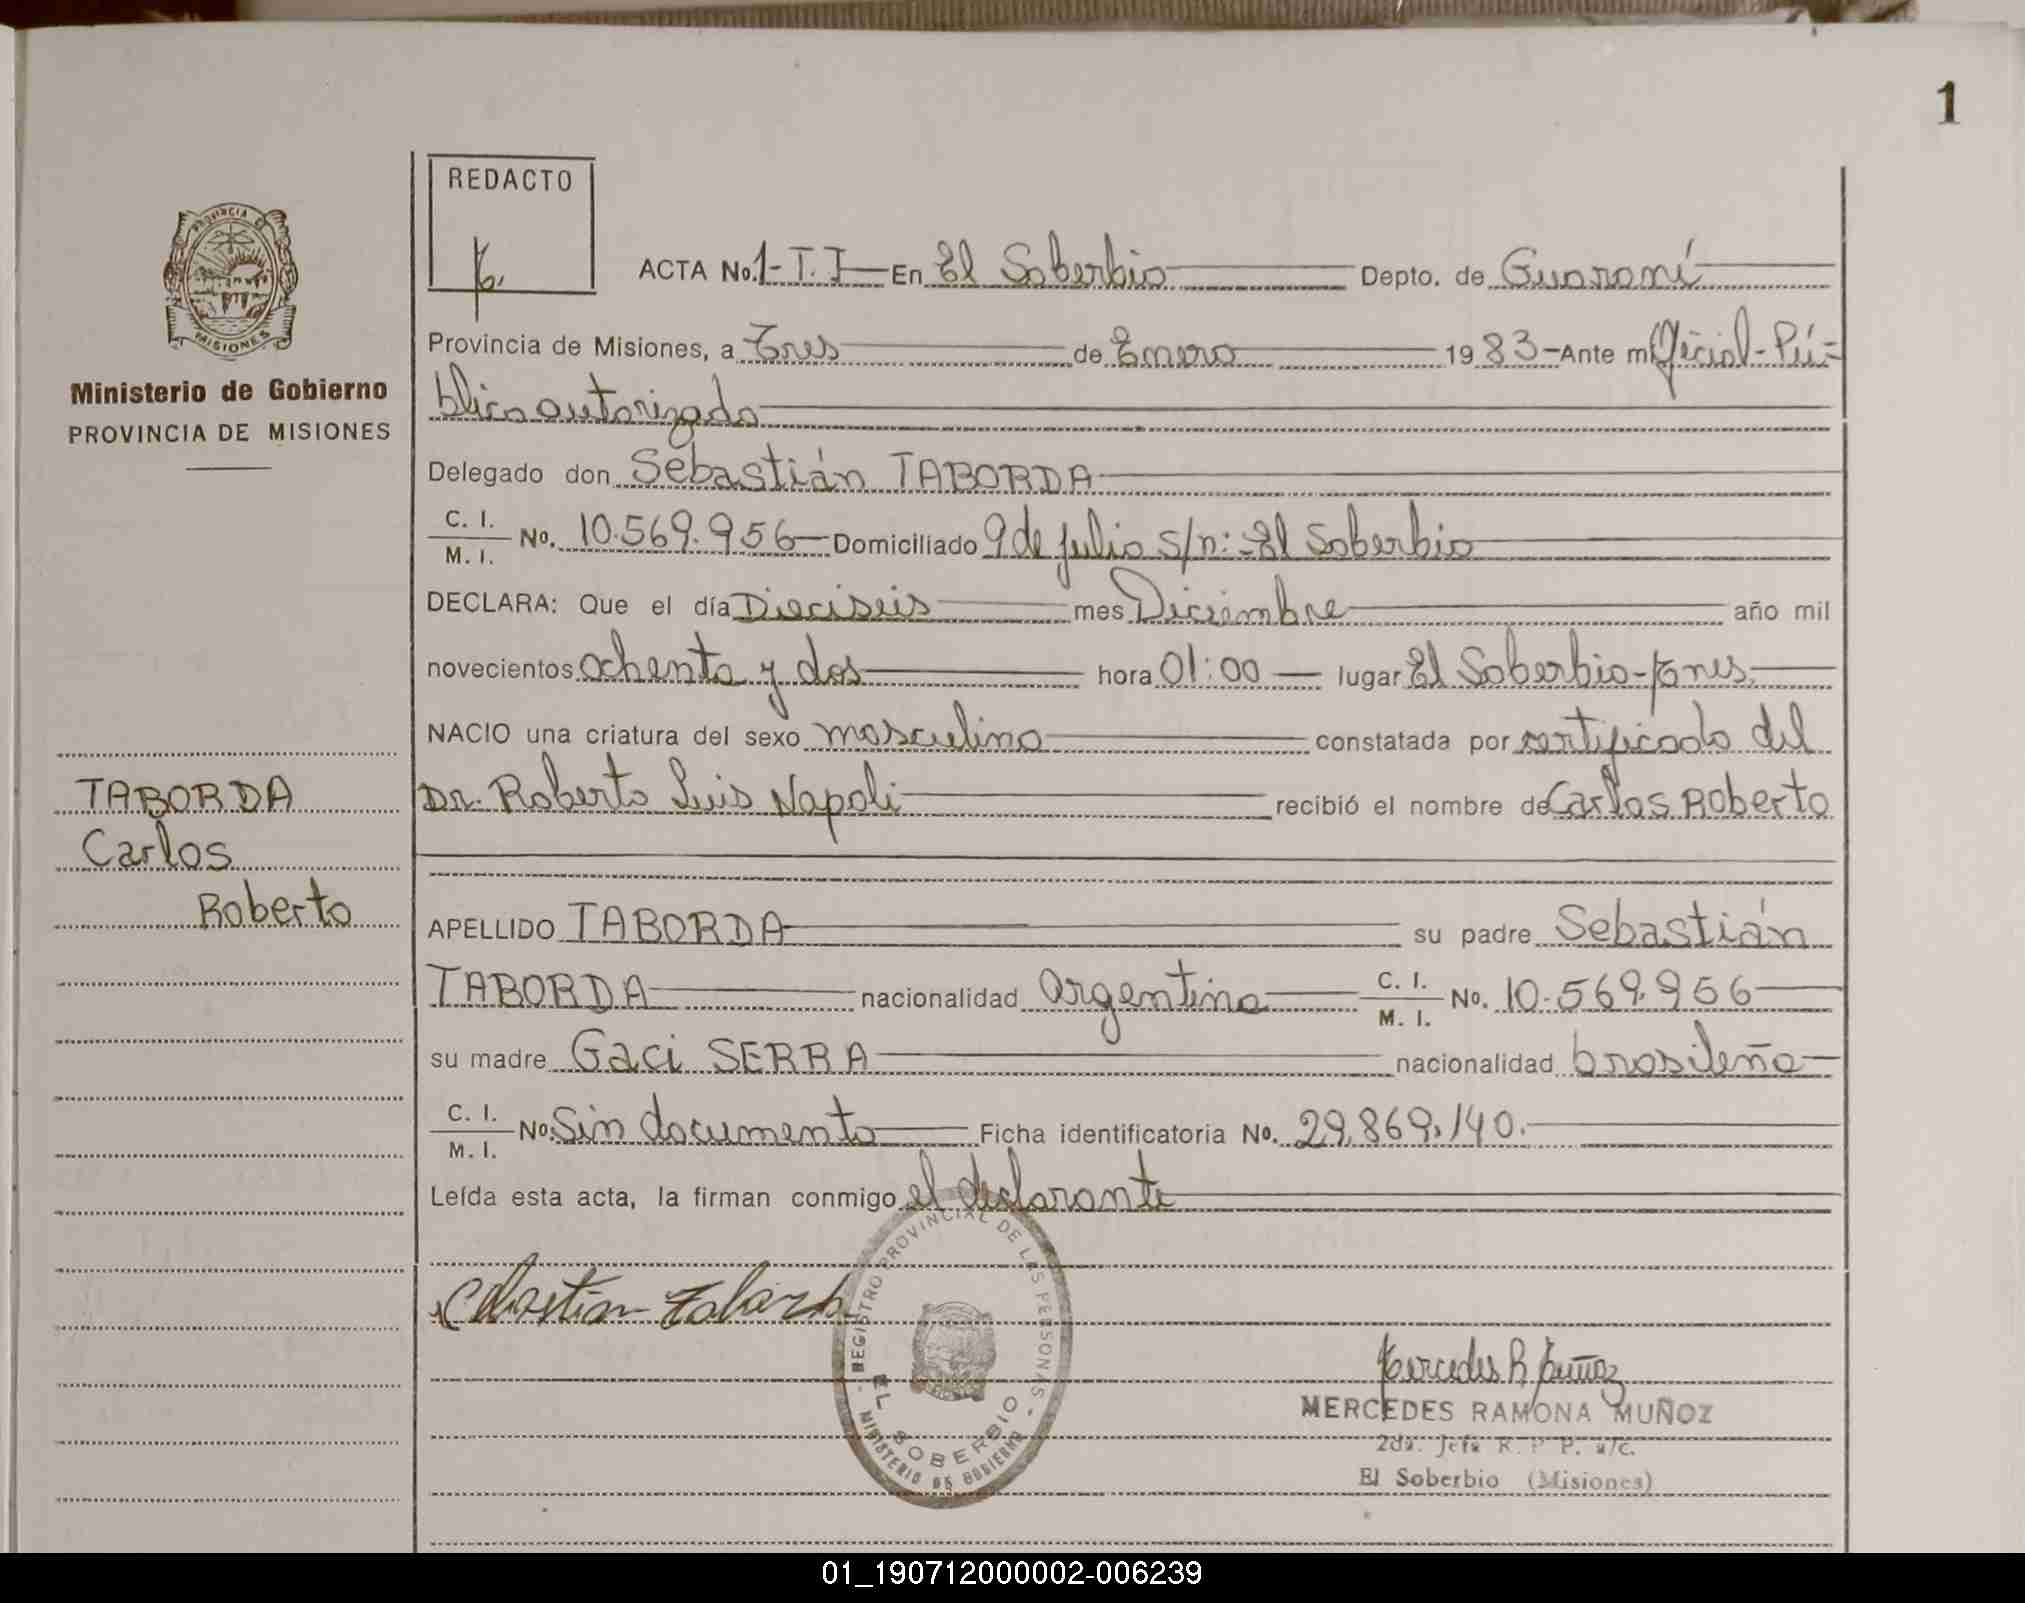 1
REDACTO
ACTA No. 1-T.I- En El Soberbio Depto. de Guaraní
Provincia de Misiones, a Tres de Enero 1983- Ante mi Oficial-Pú-
blico autorizado
Delegado don Sebastián TABORDA
C. I.
M. I. No. 10.569.956- Domiciliado 9 de julio s/n:-El Soberbio
DECLARA: Que el día Dieciseis mes Diciembre año mil
novecientos ochenta y dos hora 01:00 lugar El Soberbio-
NACIO una criatura del sexo masculino constatada por certificado del
Dr. Roberto Luis Napoli recibió el nombre de Carlos Roberto
APELLIDO TABORDA su padre Sebastián
TABORDA nacionalidad argentina C. I.
M. I. No. 10.569.956
su madre Gaci SERRA nacionalidad brasileña
C. I.
M. I. No. Sin documento Ficha identificatoria No. 29.869.140.
Leída esta acta, la firman conmigo el declarante
Sebastian Taborda
REGISTRO PROVINCIAL DE LAS PERSONAS
EL SOBERBIO
MINISTERIO DE GOBIERNO
Mercedes R Muñoz
MERCEDES RAMONA MUÑOZ
2da. Jefa R. P P. a/c.
El Soberbio (Misiones)
PROVINCIA DE
MISIONES
Ministerio de Gobierno
PROVINCIA DE MISIONES
TABORDA
Carlos
Roberto
01_190712000002-006239